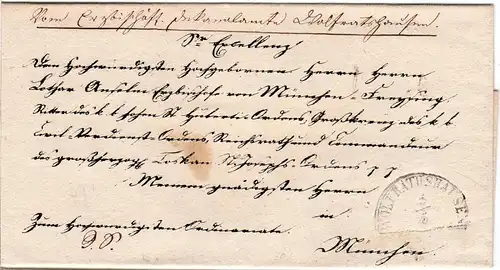 Vom Erzbischöfl. Dekanalamte Wolfratshausen.
Sr Exzellenz
Den Hochwürdigsten Hochgebornen Herrn Herrn
Lothar Anselm Erzbischofe von München-Freysing
Ritter des k. b. St Huberti-Ordens, Großkreuz des k. b.
Civil-Verdienst-Ordens, Reichsrath und Commandeur
des großherzogl. Toskan. St. Josephs-Ordens
Meinem gnädigsten Herrn
in
Zum Hochwürdigsten Ordinariate.
München.
WOLFRATHSHAUSEN